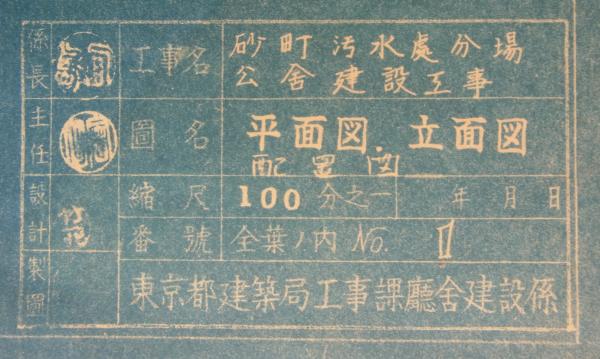 係長
主任
設計
製圖
工事名
砂町汚水處分場
公舍建設工事
圖名
平面図. 立面図
配置図
縮尺
100分之一
年 月 日
番號
全葉ノ内 No. 1
東京都建築局工事課廳舍建設係